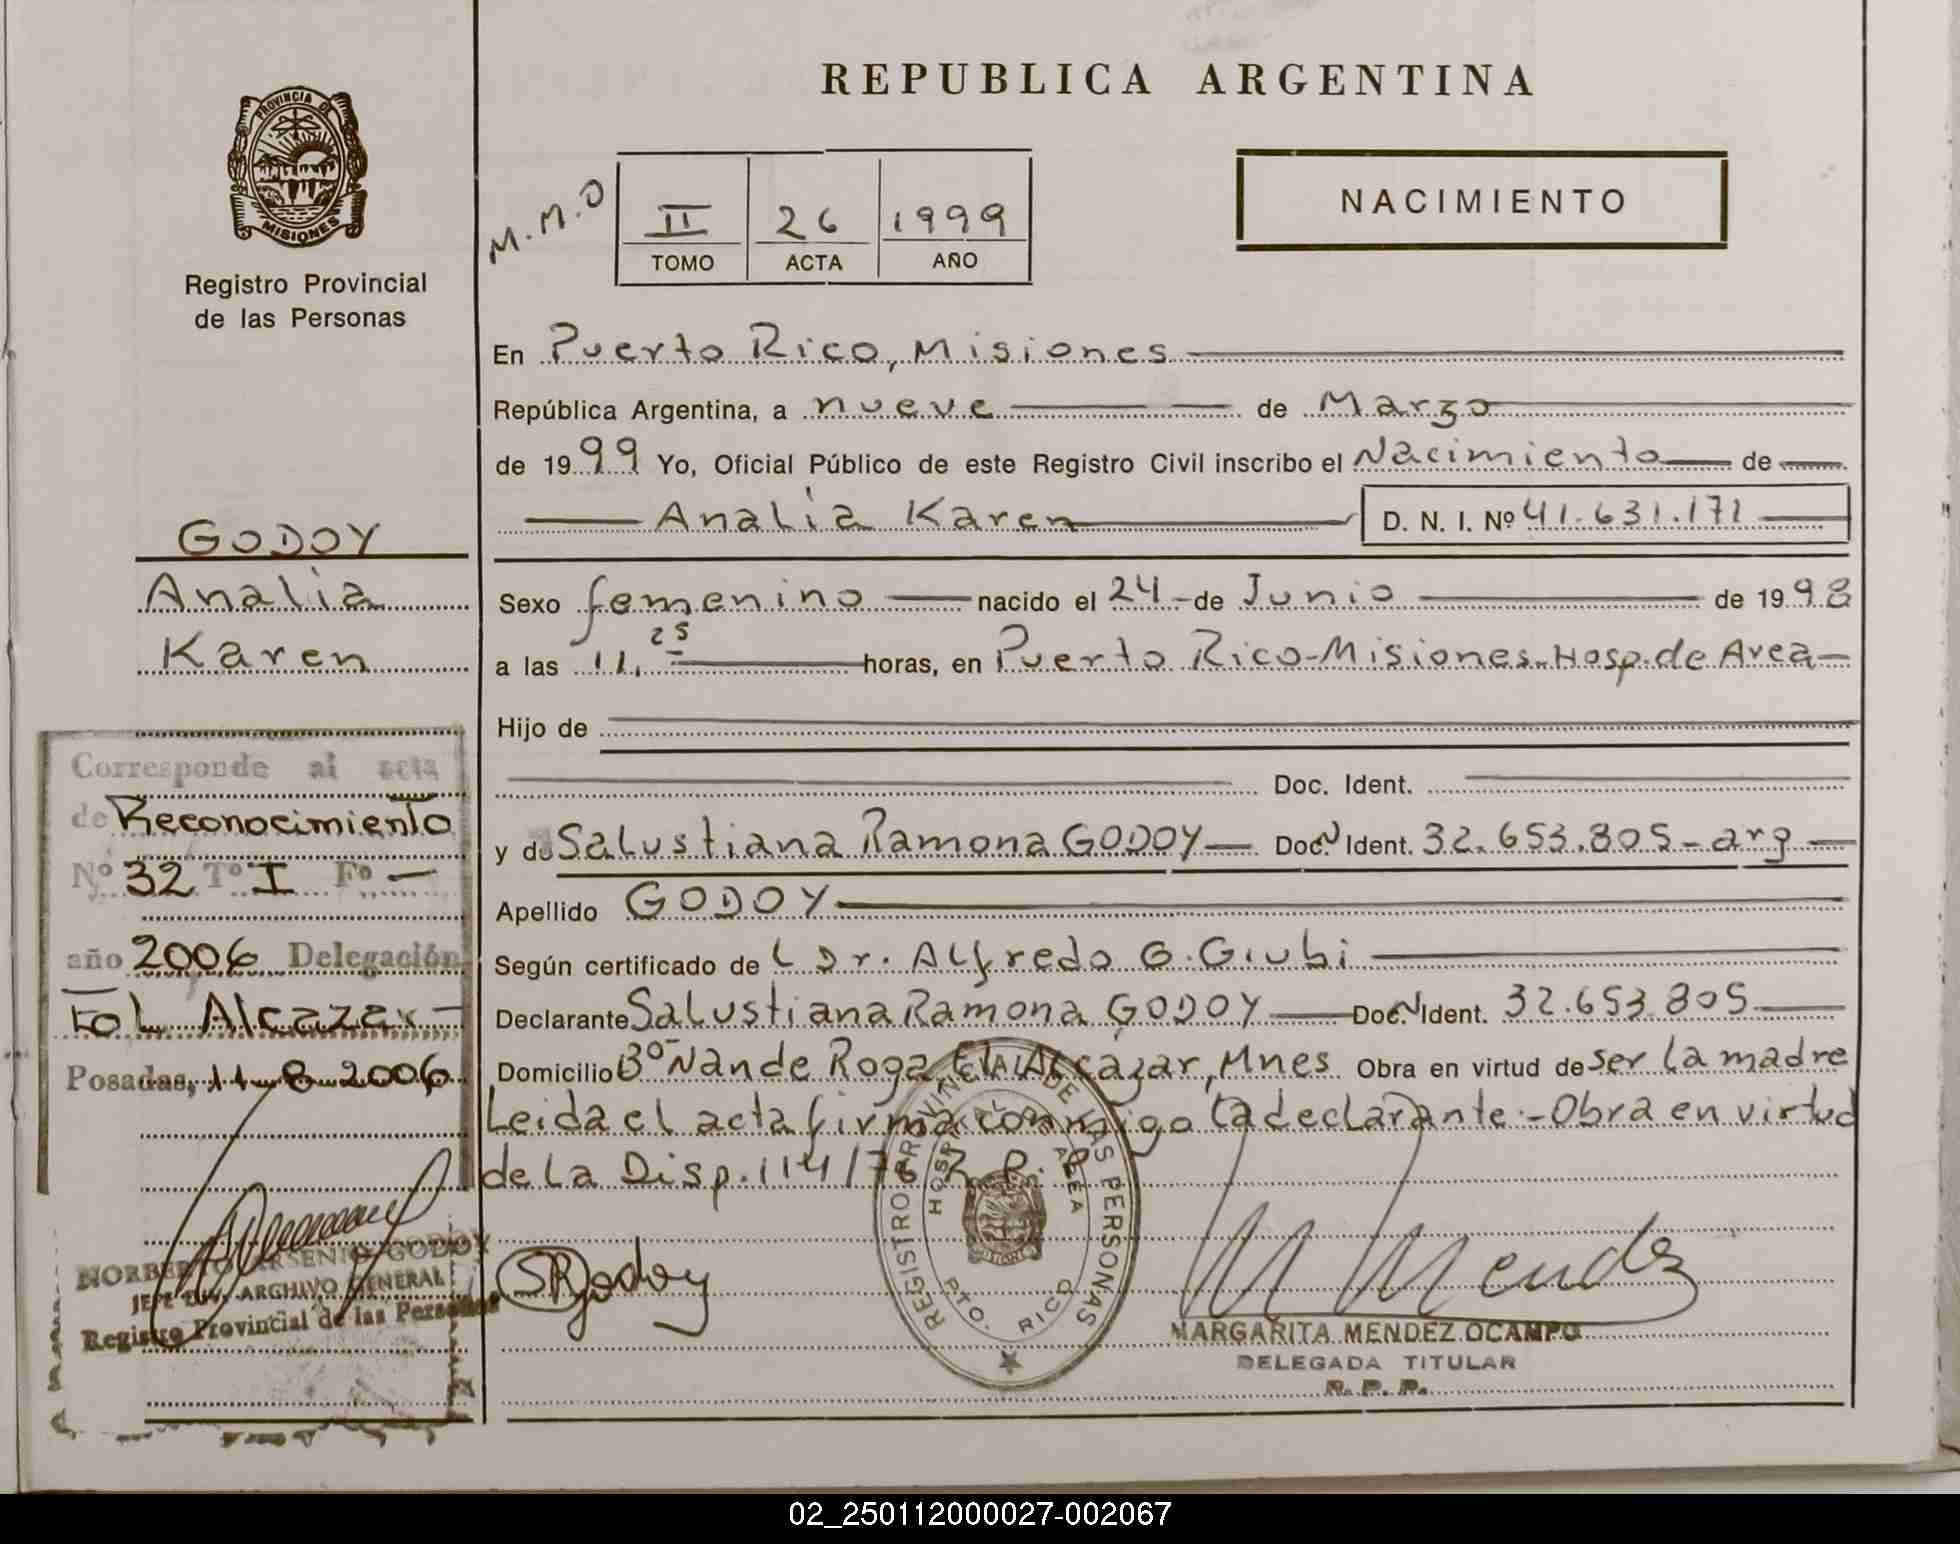 REPUBLICA ARGENTINA
PROVINCIA DE
MISIONES
Registro Provincial
de las Personas
M.M.O
II 26 1999
TOMO ACTA AÑO
NACIMIENTO
En Puerto Rico, Misiones
República Argentina, a nueve de Marzo
de 1999 Yo, Oficial Público de este Registro Civil inscribo el Nacimiento de
Analia Karen D. N. I. Nº 41.631.171
GODOY
Analia
Karen
Sexo femenino nacido el 24 de Junio de 1998
a las 11.25 horas, en Puerto Rico-Misiones-Hosp.de Area
Hijo de
Doc. Ident.
y de Salustiana Ramona GODOY Doc. Ident. 32.653.805-arg
Apellido GODOY
Según certificado de L Dr. Alfredo G. Giubi
Declarante Salustiana Ramona GODOY Doc. Ident. 32.653.805
Domicilio Bº Ñande Roga El Alcázar, Mnes Obra en virtud de ser la madre
Leida el acta firma conmigo la declarante.-Obra en virtud
de la Disp. 114/76 R.P.P.
Corresponde al acta
de Reconocimiento
Nº 32 Tº I Fº -
año 2006 Delegación
Alcazar-
Posadas, 11-8-2006
NORBERTO ARSENIO GODOY
JEFE DIV. ARCHIVO GENERAL
Registro Provincial de las Personas
SRGodoy
REGISTRO PROVINCIAL DE LAS PERSONAS
HOSPITAL DE AREA
PTO. RICO
M Mendez
MARGARITA MENDEZ OCAMPO
DELEGADA TITULAR
R. P. P.
02_250112000027-002067